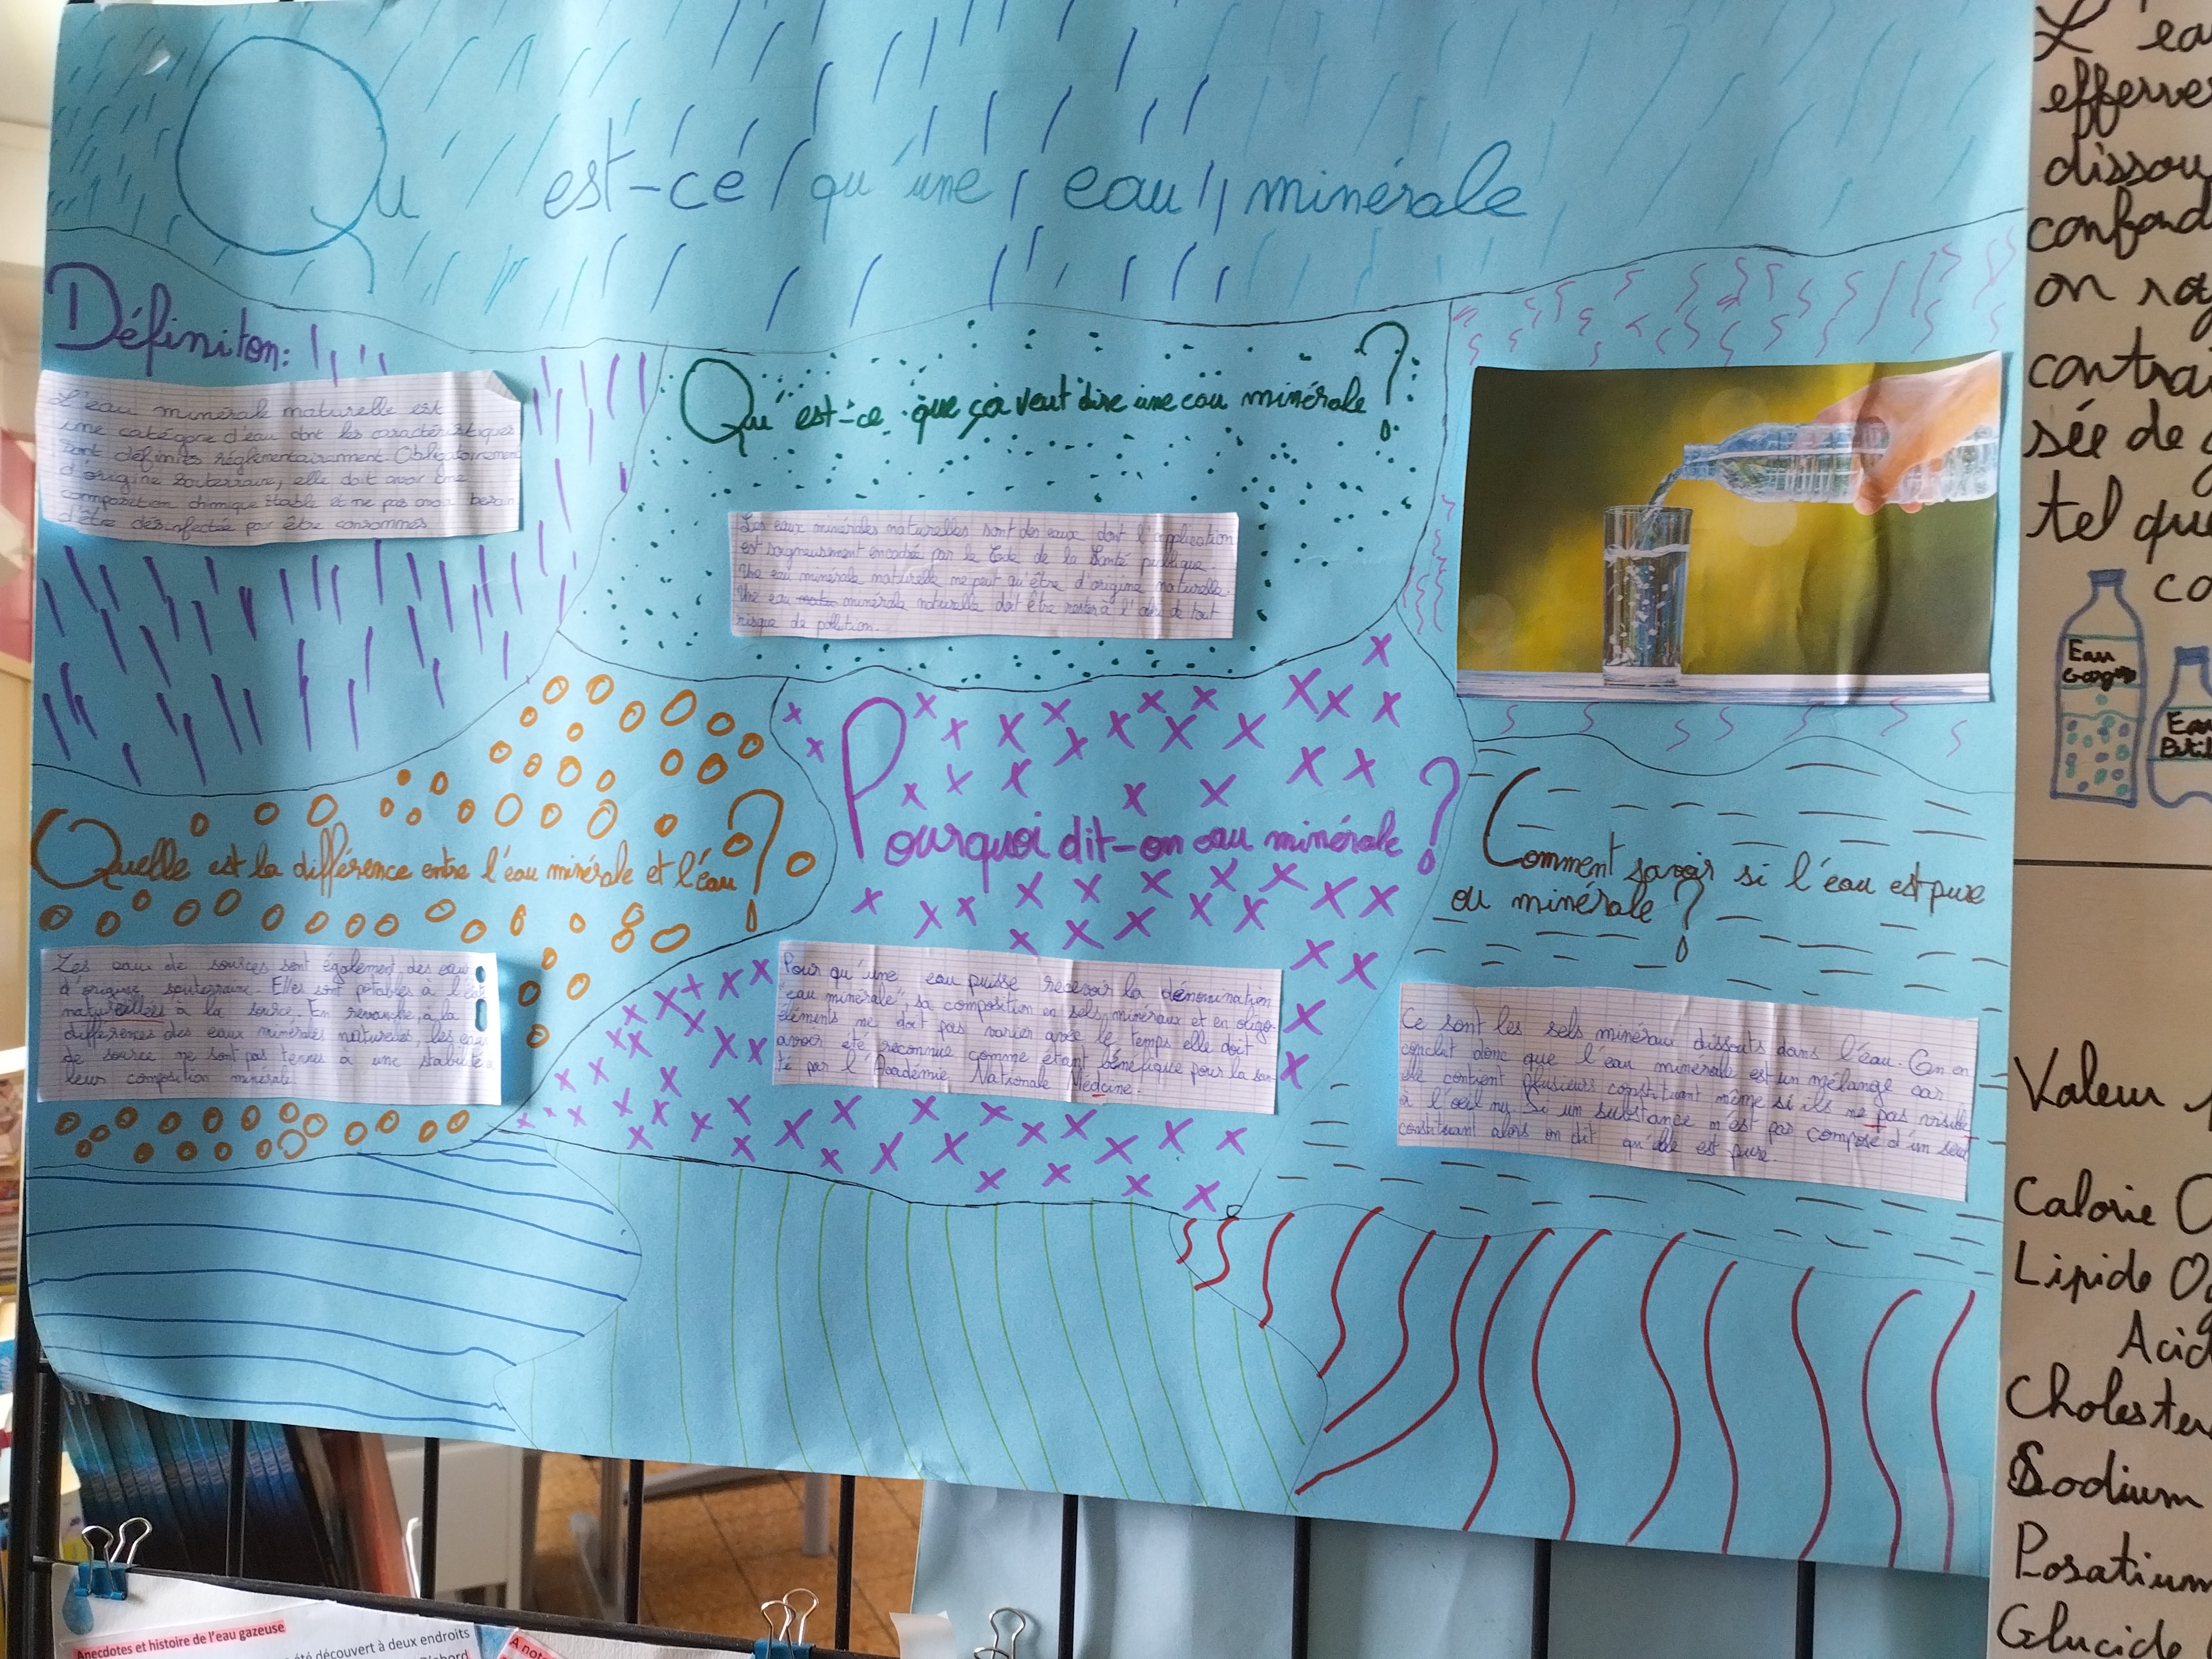 Qu'est-ce qu'une eau minérale
Définiton:
L'eau minérale naturelle est
une catégorie d'eau dont les caractéristiques
sont définies réglementairement. Obligatoirement
d'origine souterraine, elle doit avoir une
composition chimique stable et ne pas avoir besoin
d'être désinfectée pour être consommés
Qu'est-ce que ça veut dire une eau minérale ?
Les eaux minérales naturelles sont des eaux dont l'application
est soigneusment encadrée par le Code de la Santé publique.
Une eau minérale naturelle ne peut qu'être d'origine naturelle.
Une eau minérale naturelle doit être rester à l'abri de tout
risque de pollution.
Quelle est la différence entre l'eau minérale et l'eau ?
Les eaux de sources sont également des eau
d'origine souterraine. Elles sont potables à l'état
à la source. En revanche, à la
différence des eaux minérales naturelles, les eau
de source ne sont pas tenues à une stabilité
leur composition minérale
Pourquoi dit-on eau minérale ?
Pour qu'une eau puisse recevoir la dénomination
"eau minérale", sa composition en sels minéraux et en oligo-
éléments ne doit pas varier avec le temps elle doit
avoir été reconnue comme étant bénéfique pour la san-
té par l'Académie Nationale Médcine.
Comment savoir si l'eau est pure
ou minérale ?
Ce sont les sels minéraux dissouts dans l'eau. On en
conclut donc que l'eau minérale est un mélange car
elle contient plusieurs constituant même si ils ne pas visible
à l'oeil nu. Si un substance n'est pas composé d'un seul
constituant alors on dit qu'elle est pure.
L'ea
efferves
dissou
confond
on ra
contrai
sée de g
tel que
co
Eau
Eau
Valeur
Calorie 0
Lipide 0
Acid
Cholester
Sodium
Posatium
Glucide
Anecdotes et histoire de l'eau gazeuse
été découvert à deux endroits
A note